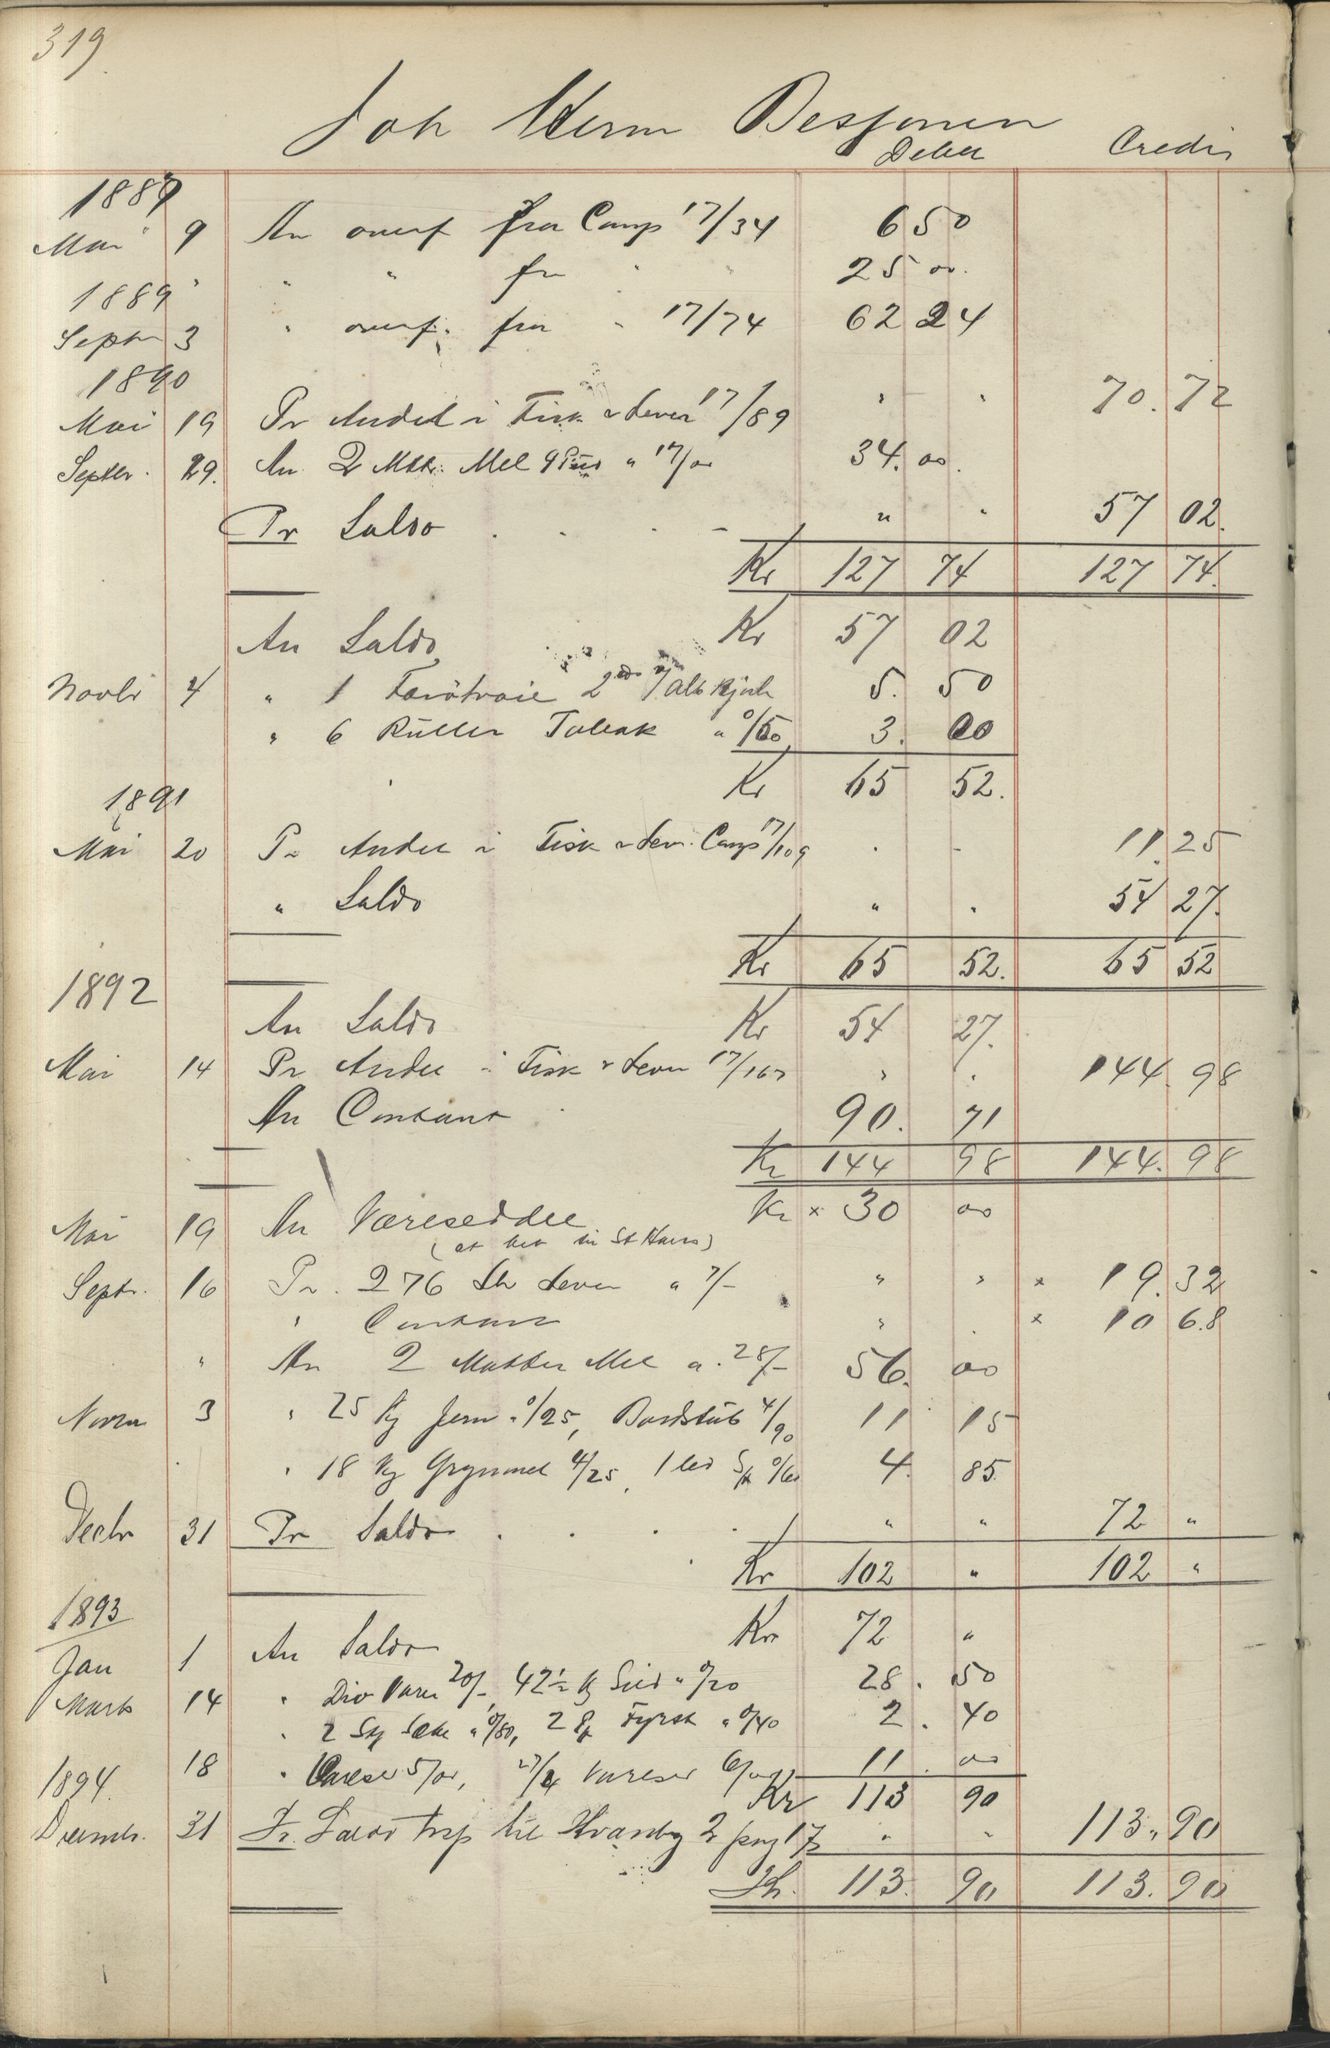 319
Joh Herm Desfonen
Debet Credit
1889
Mai 9 An overf fra Camp 17/34 6 50
" " fr " " 25 00
1889
Septr 3 " overf. fra " 17/74 62 24
1890
Mai 19 Pr Andel i Fisk & Lever 17/89 " " 70. 72
Septbr. 29. An 2 Mtt. Mel 9 Pus " 17/00 34. 00.
Pr Saldo . . . " " 57 02.
Kr 127 74 127 74.
An Saldo Kr 57 02
Novbr 4 " 1 Færötroie 5. 50
" 6 Ruller Tobak a 0/50 3. 00
Kr 65 52.
1891
Mai 20 Pr Andel i Fisk & Lev. Camp 17/109 " " 11.25
" Saldo " " 54 27.
Kr 65 52. 65 52
1892
An Saldo Kr 54 27.
Mai 14 Pr Andel i Fisk & Lever 17/167 " " 144. 98
An Contant 90. 71
Kr 144 98 144. 98
Mai 19 An Vareseddel Kr x 30 00
(at bet til St Hans)
Septr. 16 Pr. 276 Ltr Lever a 7/- " " x 19. 32
" Contant " . x 10 68
" An 2 Matter Mel a. 28/- 56. 00
Novbr 3 " 25 Kg Jern a 0/25, Bordstub 4/90 11 15
" 18 Kg Grynmel 4/25, 1 0/60 4. 85
Decbr 31 Pr Saldo . . . " " 72 "
Kr 102 " 102 "
1893
Jan 1 An Saldo Kr 72 "
Marts 14 " Div Varer 20/-, 42½ Kg Sild a 0/20 28. 50
" 2 Stk Sæke a 0/80, 2 Pk Fyrst a 0/40 2. 40
18 " Vareser 5/00, 27/4 Vareser 6/00 11. 00
1894. Kr 113 90
Decembr. 31 Pr. Saldo trsp til Kvanby 2 pag 17 " " 113. 90
Kr. 113. 90 113. 90